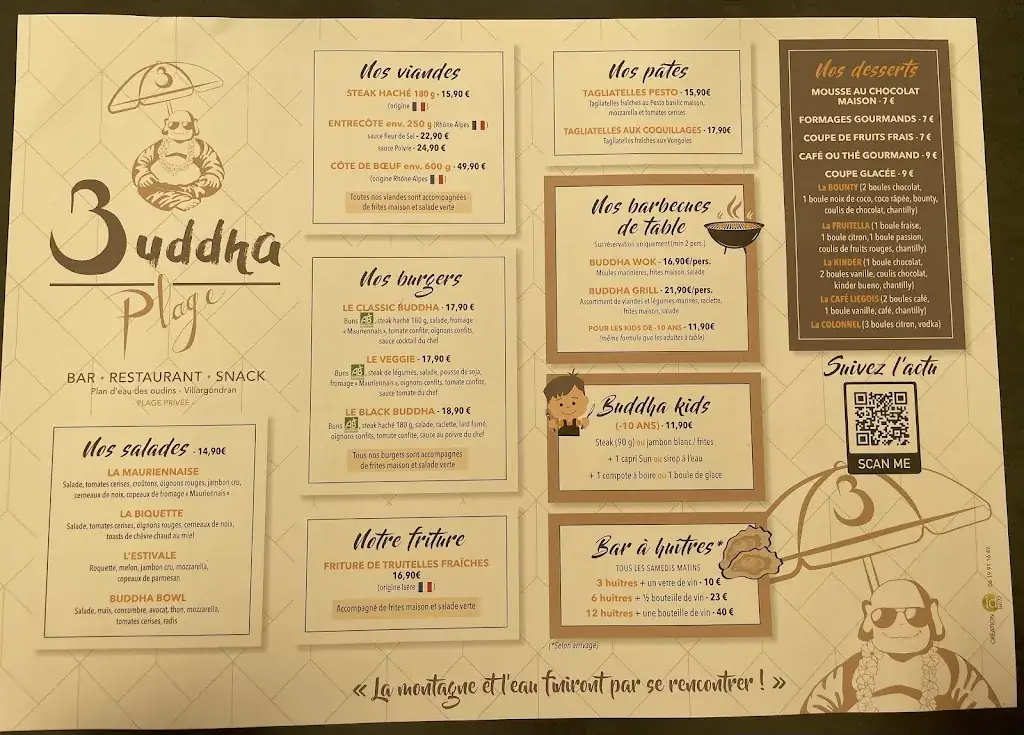 3
3uddha
Plage
BAR • RESTAURANT • SNACK
Plan d'eau des oudins - Villargondran
PLAGE PRIVÉE
Nos salades - 14,90€
LA MAURIENNAISE
Salade, tomates cerises, croûtons, oignons rouges, jambon cru,
cerneaux de noix, copeaux de fromage « Mauriennais »
LA BIQUETTE
Salade, tomates cerises, oignons rouges, cerneaux de noix,
toasts de chèvre chaud au miel
L'ESTIVALE
Roquette, melon, jambon cru, mozzarella,
copeaux de parmesan
BUDDHA BOWL
Salade, maïs, concombre, avocat, thon, mozzarella,
tomates cerises, radis
Nos viandes
STEAK HACHÉ 180 g - 15,90 €
(origine )
ENTRECÔTE env. 250 g (Rhône-Alpes )
sauce fleur de Sel - 22,90 €
sauce Poivre - 24,90 €
CÔTE DE BŒUF env. 600 g - 49,90 €
(origine Rhône-Alpes )
Toutes nos viandes sont accompagnées
de frites maison et salade verte
Nos burgers
LE CLASSIC BUDDHA - 17,90 €
Buns AB, steak haché 180 g, salade, fromage
« Mauriennais », tomate confite, oignons confits,
sauce cocktail du chef
LE VEGGIE - 17,90 €
Buns AB, steak de légumes, salade, pousse de soja,
fromage « Mauriennais », oignons confits, tomate confite,
sauce tomate du chef
LE BLACK BUDDHA - 18,90 €
Buns AB, steak haché 180 g, salade, raclette, lard fumé,
oignons confits, tomate confite, sauce au poivre du chef
Tous nos burgers sont accompagnés
de frites maison et salade verte
Notre friture
FRITURE DE TRUITELLES FRAÎCHES
16,90€
(origine Isère )
Accompagné de frites maison et salade verte
Nos pâtes
TAGLIATELLES PESTO - 15,90€
Tagliatelles fraîches au Pesto basilic maison,
mozzarella et tomates cerises
TAGLIATELLES AUX COQUILLAGES - 17,90€
Tagliatelles fraîches aux Vongoles
Nos barbecues
de table
Sur réservation uniquement (min 2 pers.)
BUDDHA WOK - 16,90€/pers.
Moules marinières, frites maison, salade
BUDDHA GRILL - 21,90€/pers.
Assortiment de viandes et légumes marinés, raclette,
frites maison, salade
POUR LES KIDS DE -10 ANS - 11,90€
(même formule que les adultes à table)
Buddha kids
(-10 ANS) - 11,90€
Steak (90 g) ou jambon blanc / frites
+ 1 capri Sun ou sirop à l'eau
+ 1 compote à boire ou 1 boule de glace
Bar à huîtres*
TOUS LES SAMEDIS MATINS
3 huîtres + un verre de vin - 10 €
6 huîtres + ½ bouteille de vin - 23 €
12 huîtres + une bouteille de vin - 40 €
(*Selon arrivage)
Nos desserts
MOUSSE AU CHOCOLAT
MAISON - 7 €
FORMAGES GOURMANDS - 7 €
COUPE DE FRUITS FRAIS - 7 €
CAFÉ OU THÉ GOURMAND - 9 €
COUPE GLACÉE - 9 €
La BOUNTY (2 boules chocolat,
1 boule noix de coco, coco râpée, bounty,
coulis de chocolat, chantilly)
La FRUITELLA (1 boule fraise,
1 boule citron, 1 boule passion,
coulis de fruits rouges, chantilly)
La KINDER (1 boule chocolat,
2 boules vanille, coulis chocolat,
kinder bueno, chantilly)
La CAFÉ LIEGOIS (2 boules café,
1 boule vanille, café, chantilly)
La COLONNEL (3 boules citron, vodka)
Suivez l'actu
SCAN ME
3
CRÉATION
06 19 91 16 49
« La montagne et l'eau finiront par se rencontrer ! »